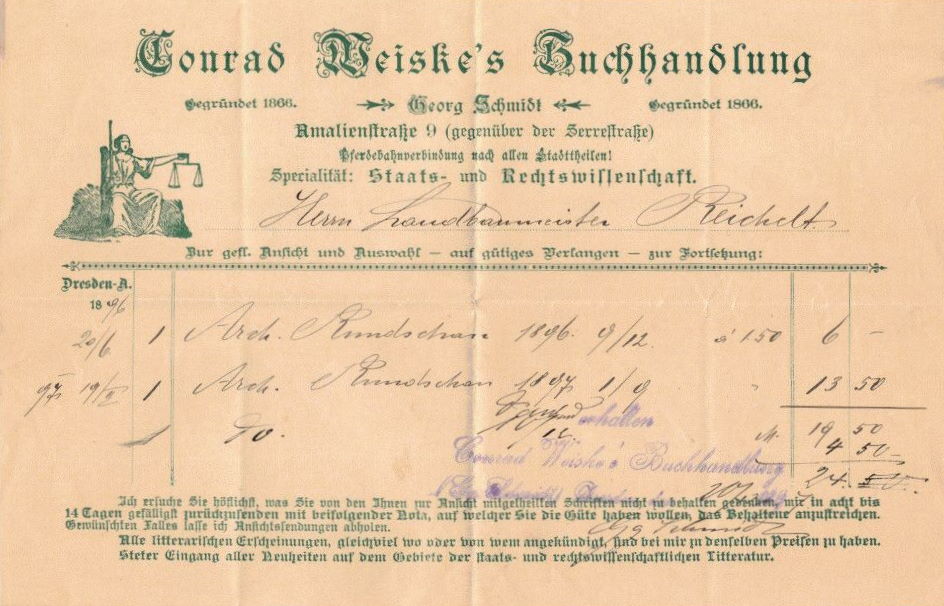 Conrad Weiske's Buchhandlung
Gegründet 1866. Georg Schmidt Gegründet 1866.
Amalienstraße 9 (gegenüber der Serrestraße)
Pferdebahnverbindung nach allen Stadttheilen!
Specialität: Staats- und Rechtswissenschaft.
Herrn Landbaumeister Reichelt
Zur gefl. Ansicht und Auswahl — auf gütiges Verlangen — zur Fortsetzung:
Dresden-A.
1896
20/6 1 Arch. Rundschau 1896. 9/12. à 1 50 6 –
97 19/ 1 Arch. Rundschau 1897 1/9 " 13 50
1 do. 10/12 M. 19 50
erhalten 4 50
Conrad Weiske's Buchhandlung 24.
Ich ersuche Sie höflichst, was Sie von den Ihnen zur Ansicht mitgetheilten Schriften nicht zu behalten gedenken, mir in acht bis
14 Tagen gefälligst zurückzusenden mit beifolgender Nota, auf welcher Sie die Güte haben wollen, das Behaltene anzustreichen.
Gewünschten Falles lasse ich Ansichtssendungen abholen.
Gg Schmidt
Alle litterarischen Erscheinungen, gleichviel wo oder von wem angekündigt, sind bei mir zu denselben Preisen zu haben.
Steter Eingang aller Neuheiten auf dem Gebiete der staats- und rechtswissenschaftlichen Litteratur.